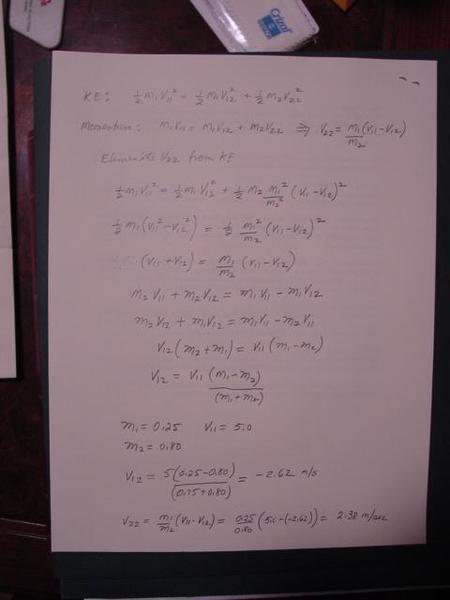 Cristal
KE: ½ m₁V₁₁² = ½ m₁V₁₂² + ½ m₂V₂₂²
Momentum: m₁V₁₁ = m₁V₁₂ + m₂V₂₂ ⇒ V₂₂ = m₁(V₁₁-V₁₂)/m₂
Eliminate V₂₂ from KE
½ m₁V₁₁² = ½ m₁V₁₂² + ½ m₂ m₁²/m₂² (V₁₁-V₁₂)²
½ m₁(V₁₁²-V₁₂²) = ½ m₁²/m₂ (V₁₁-V₁₂)²
(V₁₁+V₁₂) = m₁/m₂ (V₁₁-V₁₂)
m₂V₁₁ + m₂V₁₂ = m₁V₁₁ - m₁V₁₂
m₂V₁₂ + m₁V₁₂ = m₁V₁₁ - m₂V₁₁
V₁₂(m₂+m₁) = V₁₁(m₁-m₂)
V₁₂ = V₁₁ (m₁-m₂)/(m₁+m₂)
m₁ = 0.25 V₁₁ = 5.0
m₂ = 0.80
V₁₂ = 5(0.25-0.80)/(0.25+0.80) = -2.62 m/s
V₂₂ = m₁/m₂ (V₁₁-V₁₂) = 0.25/0.80 (5.0-(-2.62)) = 2.38 m/sec